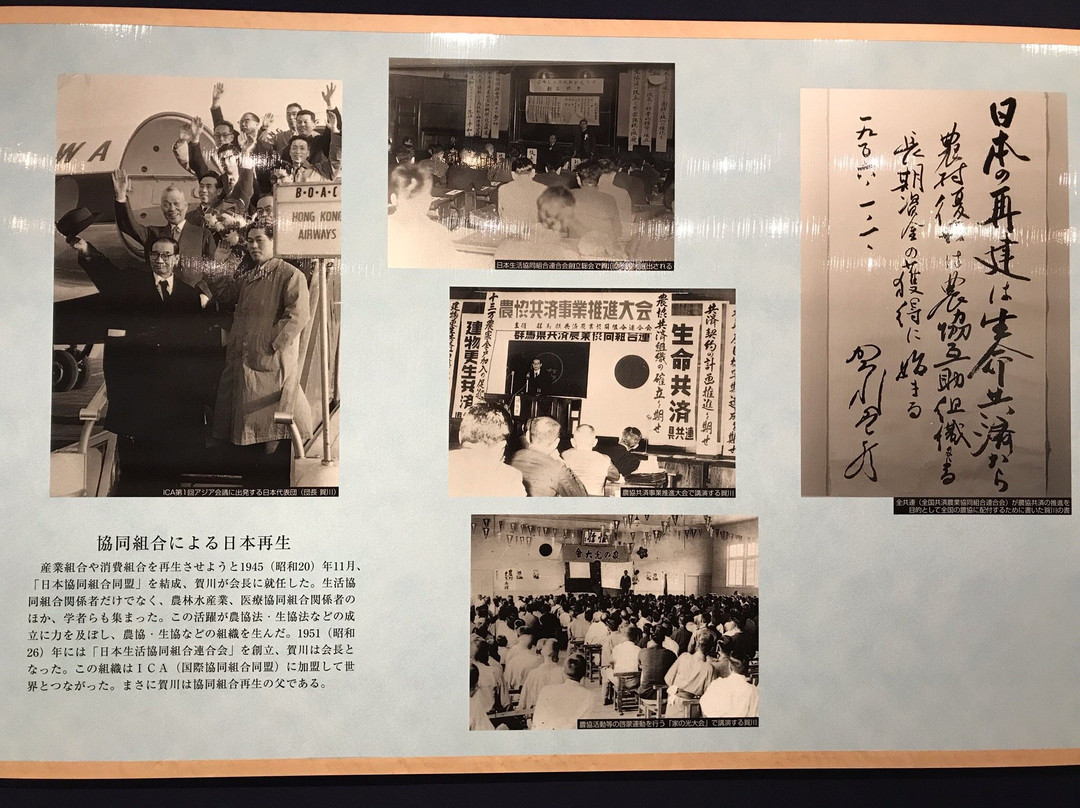 WA
B·O·A·C
HONG KONG
AIRWAYS
ICA第1回アジア会議に出発する日本代表団（団長 賀川）
協同組合による日本再生
産業組合や消費組合を再生させようと1945（昭和20）年11月、
「日本協同組合同盟」を結成、賀川が会長に就任した。生活協
同組合関係者だけでなく、農林水産業、医療協同組合関係者の
ほか、学者らも集まった。この活躍が農協法・生協法などの成
立に力を及ぼし、農協・生協などの組織を生んだ。1951（昭和
26）年には「日本生活協同組合連合会」を創立、賀川は会長と
なった。この組織はＩＣＡ（国際協同組合同盟）に加盟して世
界とつながった。まさに賀川は協同組合再生の父である。
日本生活協同組合連合会創立総会で賀川
出される
農協共済事業推進大会
群馬県共済農業協同組合連
建物更生共済
生命共済
県共連
農協共済組織の確立を期せ
共済契約の計画推進を期せ
農協共済事業推進大会で講演する賀川
農協活動等の啓蒙運動を行う「家の光大会」で講演する賀川
日本の再建は生命共済から
農村復興は農協互助組織による
長期資金の獲得に始まる
賀川豊彦
全共連（全国共済農業協同組合連合会）が農協共済の推進を
目的として全国の農協に配付するために書いた賀川の書